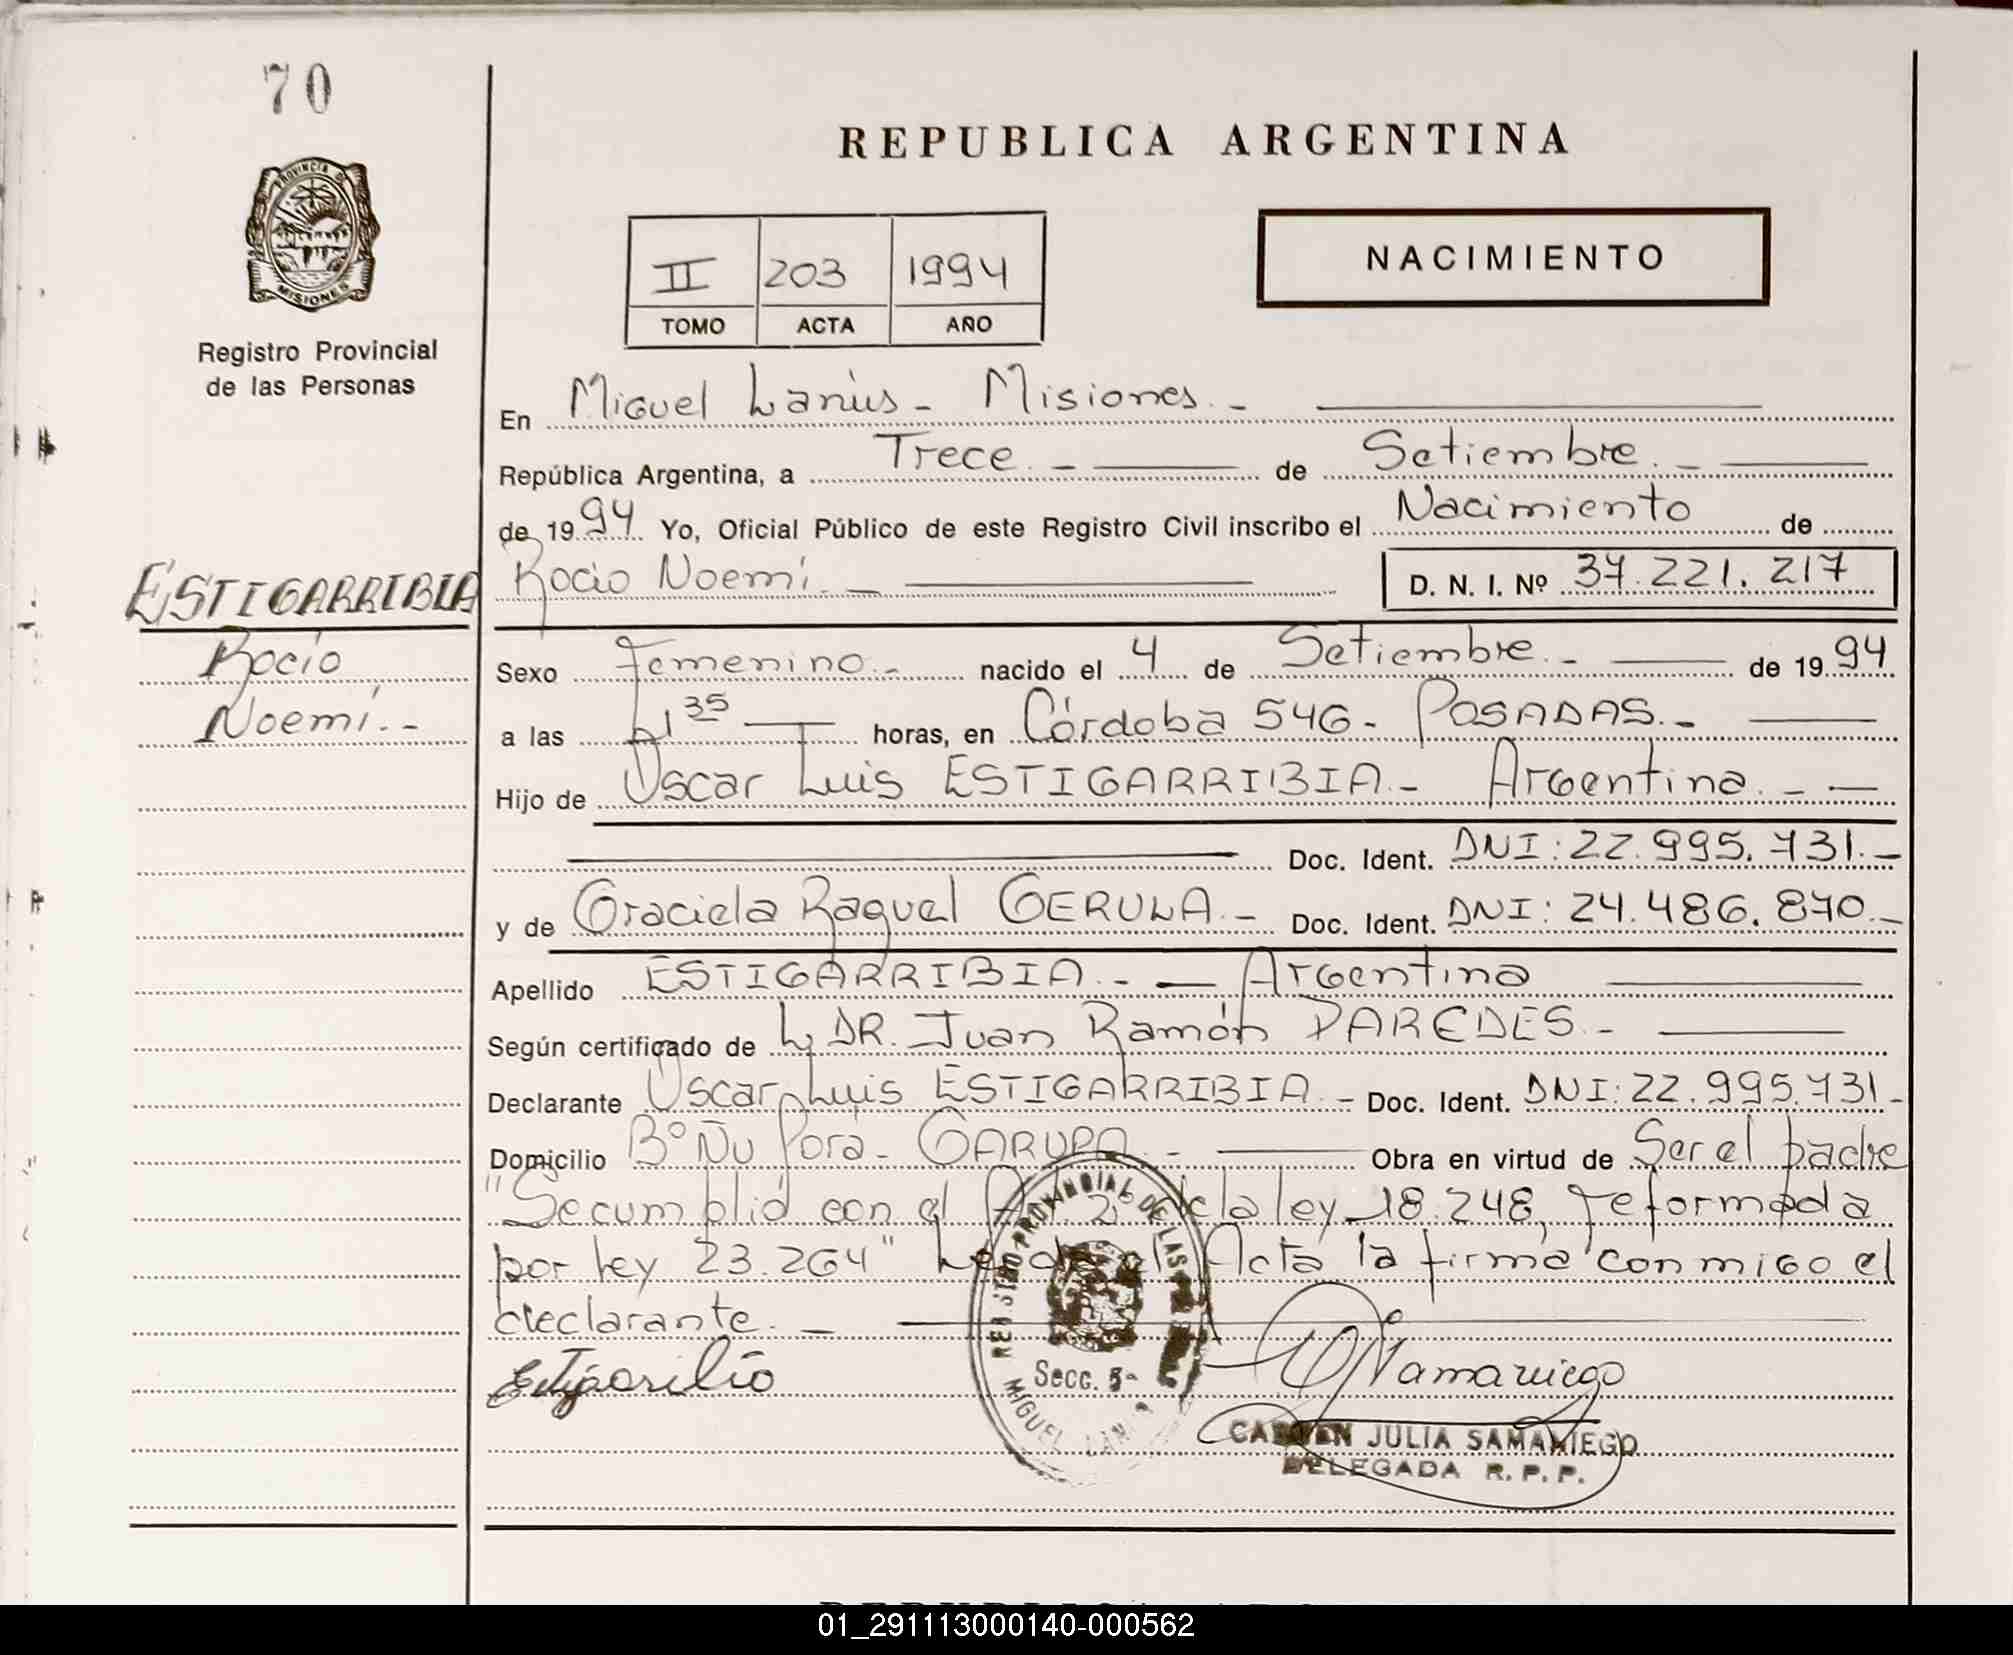 70
REPUBLICA ARGENTINA
PROVINCIA DE
MISIONES
Registro Provincial
de las Personas
II 203 1994
TOMO ACTA AÑO
NACIMIENTO
En Miguel Lanús - Misiones. -
República Argentina, a Trece. - de Setiembre. -
de 1994 Yo, Oficial Público de este Registro Civil inscribo el Nacimiento de
Rocio Noemí. - D. N. I. Nº 37.221.217
ESTIGARRIBIA
Rocío
Noemí. -
Sexo Femenino. - nacido el 4 de Setiembre. - de 1994
a las 35 horas, en Córdoba 546 - POSADAS. -
Hijo de Oscar Luis ESTIGARRIBIA. - Argentina. - -
Doc. Ident. DNI: 22.995.731. -
y de Graciela Raquel GERULA. - Doc. Ident. DNI: 24.486.870. -
Apellido ESTIGARRIBIA. - - Argentina
Según certificado de L DR. Juan Ramón PAREDES. -
Declarante Oscar Luis ESTIGARRIBIA. - Doc. Ident. DNI: 22.995.731 -
Domicilio Bº Ñu Porá - GARUPA. - Obra en virtud de Ser el padre
"Se cumplió con el Art. 2º de la ley 18.248, reformada
por ley 23.264" Leída el Acta la firma conmigo el
declarante. -
REGISTRO PROVINCIAL DE LAS
Secc. 5ª
MIGUEL LANUS
CARMEN JULIA SAMANIEGO
DELEGADA R. P. P.
01_291113000140-000562